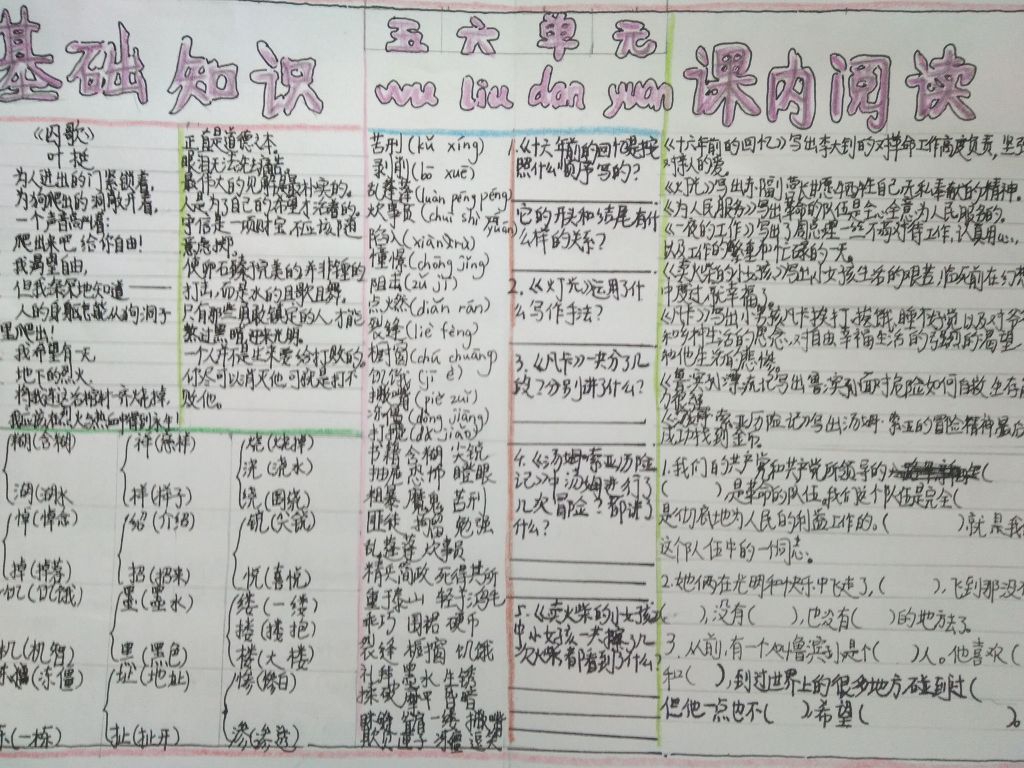 基础知识
五六单元
wu liu dan yuan
课内阅读
《囚歌》
叶挺
为人进出的门紧锁着,
为狗爬出的洞敞开着,
一个声音高叫着:
爬出来吧,给你自由!
我渴望自由,
但我深深地知道——
人的身躯怎能从狗洞子
里爬出!
我希望有一天
地下的烈火
正直是道德之本
最朴实的。
人是为了自己的希望才活着的。
守信是一项财宝,不应该
意虚掷。
使卵石臻于完美的并非锤的
打击,而是水的且歌且舞。
只有那些勇敢镇定的人,才能
熬过黑暗,迎来光明。
一个人并不是生来要给打败的,
你尽可以消灭他,可就是打不
败他。
糊(含糊)
湖(湖水
悼(悼念)
掉(掉落)
饥(饥饿)
机(机智)
(冻僵)
栋(一栋)
祥(慈祥)
样(样子)
绍(介绍)
招(招来)
墨(墨水)
黑(黑色)
址(地址)
扯(扯开)
烧(燃烧)
浇(浇水)
绕(围绕)
锐(尖锐)
悦(喜悦)
缕(一缕)
搂(搂抱)
楼(大楼)
惨(惨白)
参(参选)
苦刑(kǔ xíng)
剥削(bō xuē)
乱蓬蓬(luàn pēng pēng)
炊事员(chuī shì yuán)
陷入(xiàn rù)
憧憬(chōng jǐng)
阻击(zǔ jī)
点燃(diǎn rán)
裂缝(liè fèng)
橱窗(chú chuāng)
饥饿(jī è)
撇嘴(piě zuǐ)
冻僵(dòng jiāng)
打搅(dǎ jiǎo)
书籍 含糊 尖锐
拖 恐怖 瞪眼
粗暴 魔鬼 苦刑
匪徒 拘留 勉强
乱蓬蓬 炊事员
精兵简政 死得其所
重于泰山 轻于鸿毛
围裙 硬币
裂缝 橱窗 饥饿
礼拜 墨水 生锈
昏暗
一缕 撇嘴
冻僵
1.《十六年前的回忆》是按
照什么顺序写的?
它的开头和结尾有什
么样的关系?
2.《灯光》运用了什
么写作手法?
3.《凡卡》一共分了几
段?分别讲了什么?
4.《汤姆·索亚历险
记》中汤姆进行了
几次冒险?都讲了
什么?
5.《卖火柴的小女孩》
中小女孩一共擦了几
次火柴都看到了什么?
《十六年前的回忆》写出李大钊的对革命工作高度负责,坚
对亲人的爱。
《灯光》写出郝副营长甘愿牺牲自己,无私奉献的精神。
《为人民服务》写出革命的队伍是全心全意为人民服务的。
《一夜的工作》写出了周总理一丝不苟对待工作,认真用心,
以及工作的繁重和忙碌的一天。
《卖火柴的小女孩》写出小女孩生活的艰苦,临死前在幻
中度过很幸福了。
《凡卡》写出小男孩凡卡挨打、挨饿、睡不好觉,以及对爷
和乡村生活的思念,对自由幸福生活的强烈的渴望
和他生活的悲惨。
《鲁宾孙漂流记》写出鲁宾孙面对危险如何自救,生存
《汤姆·索亚历险记》写出汤姆·索亚的冒险精神最后
成功找到金币。
1.我们的共产党和共产党所领导的(
),是革命的队伍,我们这个队伍是完全(
是彻底地为人民的利益工作的。( )就是我
这个队伍中的一个同志。
2.她俩在光明和快乐中飞走了,( ),飞到那没
),没有( ),也没有( )的地方去了。
3.从前,有一个叫鲁宾孙是个( )人。他喜欢(
和( ),到过世界上的很多地方,碰到过(
但他一点也不( ),希望( )。